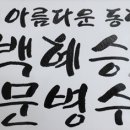 아름다운 동
백혜승
문병수